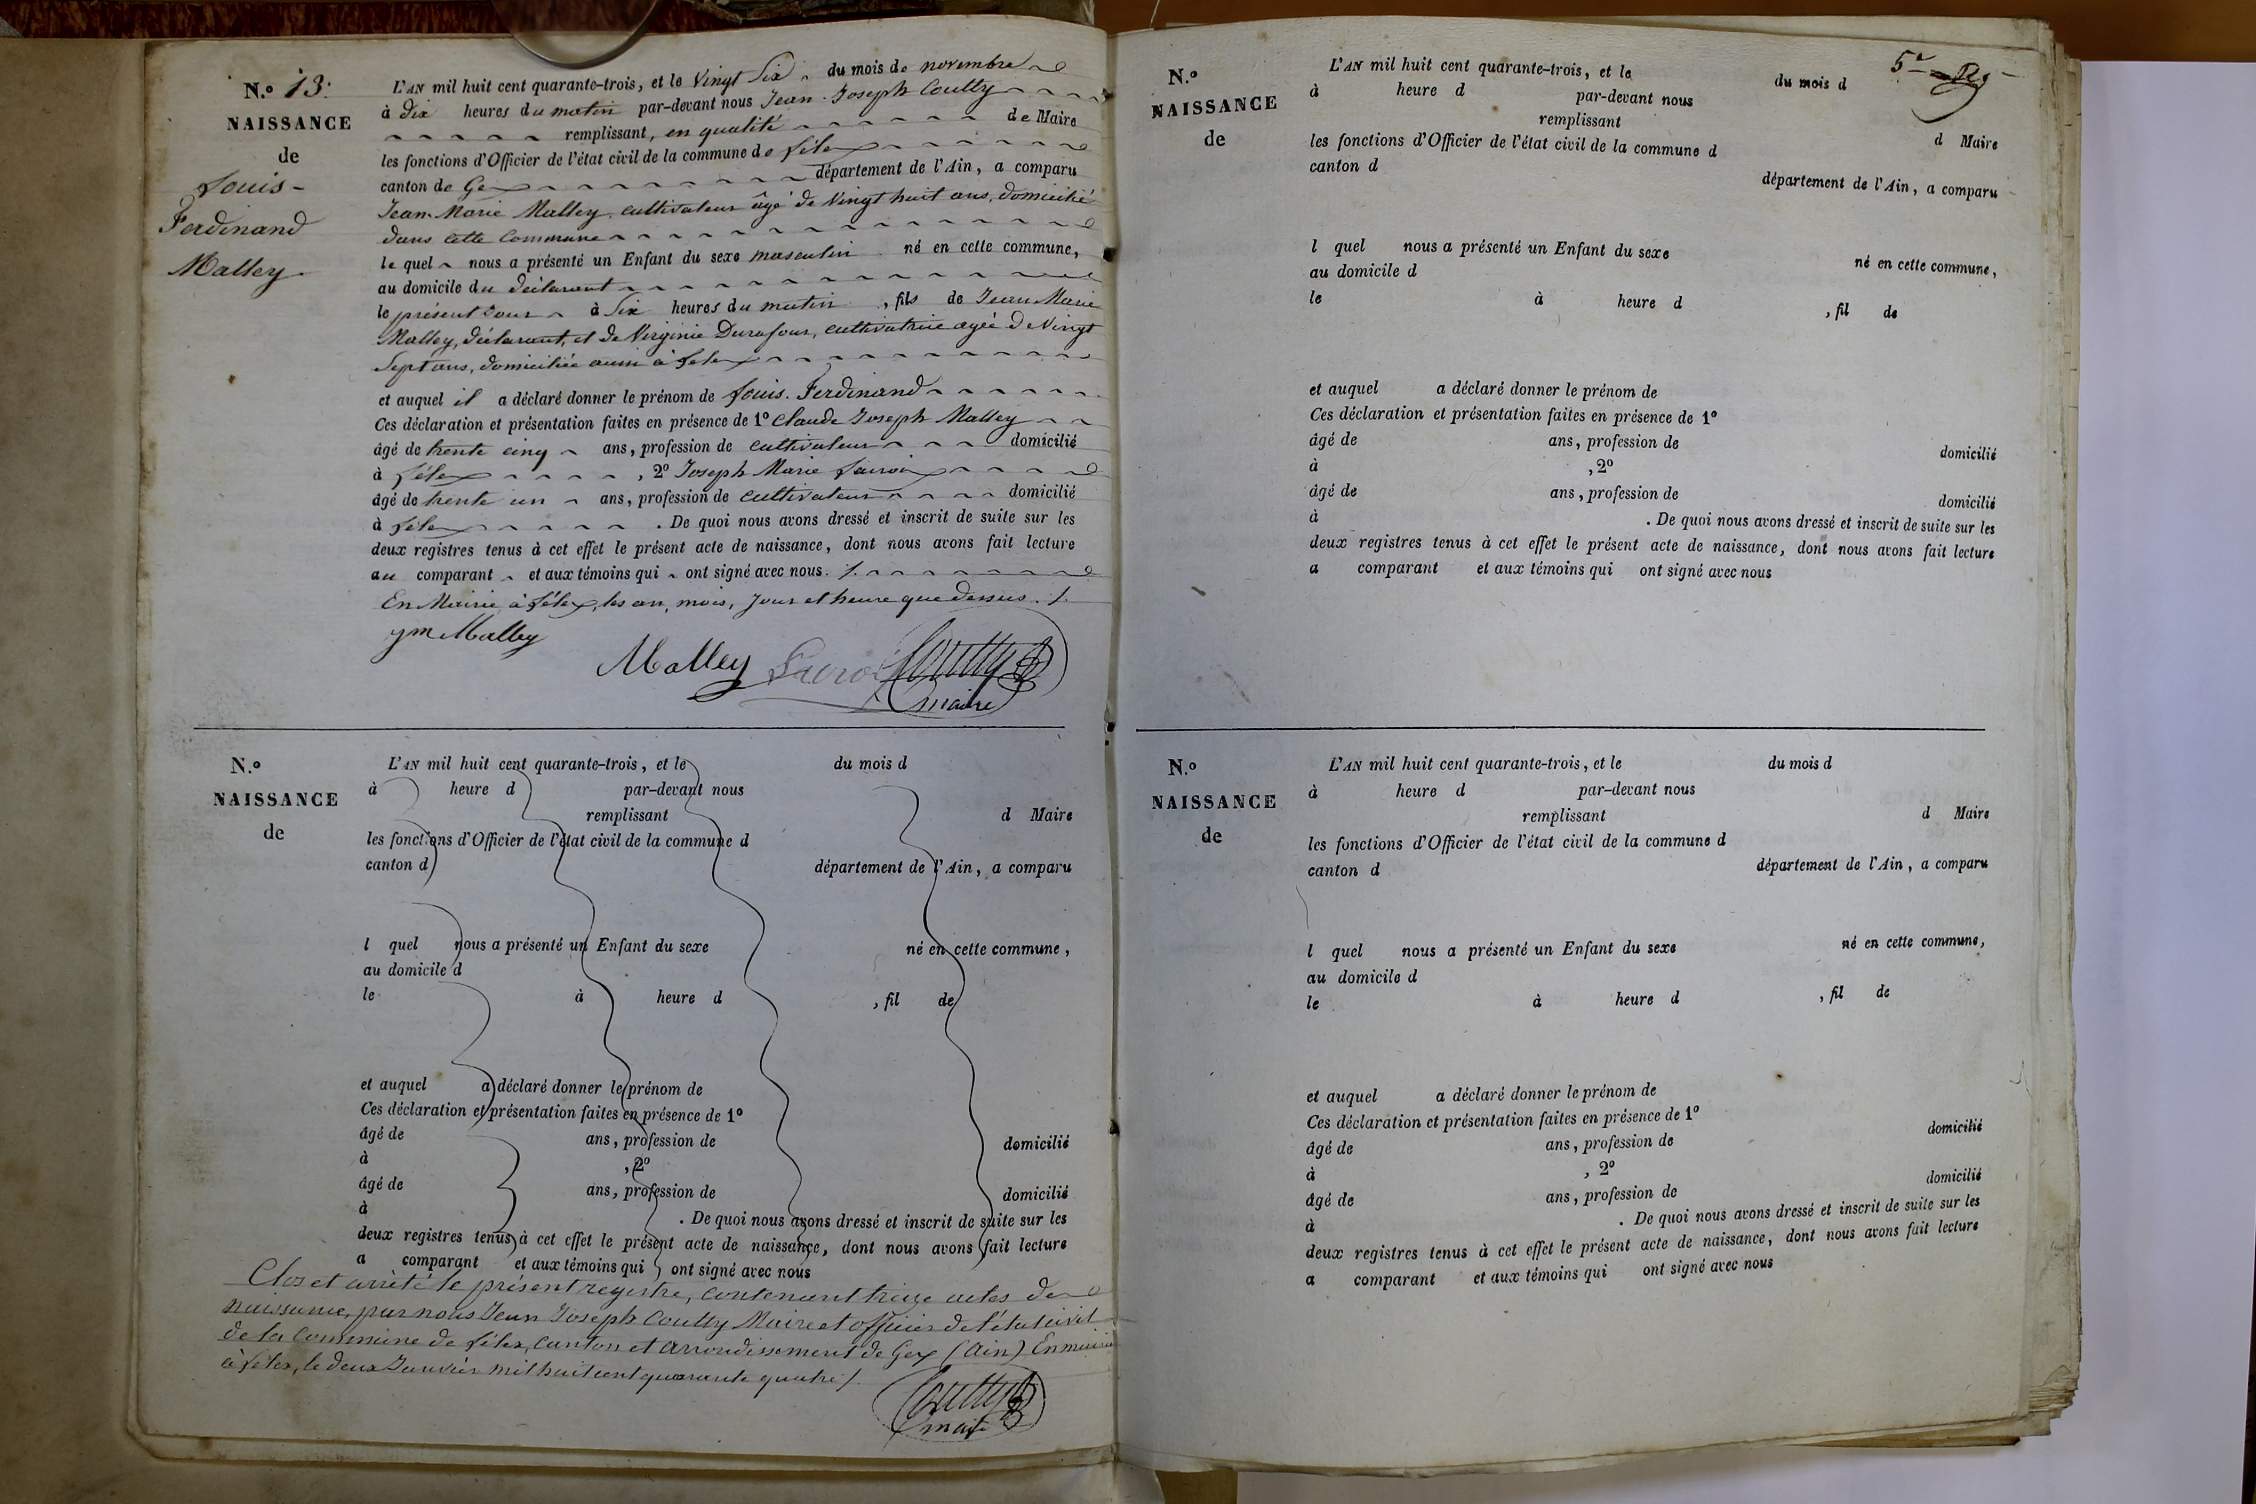 N.º 13.
NAISSANCE
de
Louis-
Ferdinand
Malley.
L'AN mil huit cent quarante-trois, et le Vingt Six du mois de novembre
à dix heures du matin par-devant nous Jean-Joseph Coutty
remplissant, en qualité de Maire
les fonctions d'Officier de l'état civil de la commune de Lélex
canton de Gex département de l'Ain, a comparu
Jean-Marie Malley, cultivateur âgé de Vingt huit ans, domicilié
dans cette Commune
le quel nous a présenté un Enfant du sexe masculin né en cette commune,
au domicile du déclarant
le présent Jour à Six heures du matin, fils de Jean Marie
Malley, déclarant, et de Virginie Durafour, cultivatrice agée de Vingt
Sept ans, domiciliée aussi à Lelex
et auquel il a déclaré donner le prénom de Louis-Ferdinand
Ces déclaration et présentation faites en présence de 1º Claude Joseph Malley
âgé de trente cinq ans, profession de cultivateur domicilié
à Lélex, 2º Joseph Marie Lacroix
âgé de trente un ans, profession de cultivateur domicilié
à Lélex. De quoi nous avons dressé et inscrit de suite sur les
deux registres tenus à cet effet le présent acte de naissance, dont nous avons fait lecture
au comparant et aux témoins qui ont signé avec nous ./.
En Mairie à Lélex, les an, mois, Jour et heure que dessus ./.
jm Malley
Malley Lacroix Coutty
maire
N.º
NAISSANCE
de
L'AN mil huit cent quarante-trois, et le du mois d
à heure d par-devant nous
remplissant d Maire
les fonctions d'Officier de l'état civil de la commune d
canton d département de l'Ain, a comparu
l quel nous a présenté un Enfant du sexe né en cette commune,
au domicile d
le à heure d , fil de
et auquel a déclaré donner le prénom de
Ces déclaration et présentation faites en présence de 1º
âgé de ans, profession de domicilié
à , 2º
âgé de ans, profession de domicilié
à . De quoi nous avons dressé et inscrit de suite sur les
deux registres tenus à cet effet le présent acte de naissance, dont nous avons fait lecture
a comparant et aux témoins qui ont signé avec nous
Clos et arrêté le présent registre, contenant treize actes de
naissance, par nous Jean Joseph Coutty Maire et officier de l'état civil
de la Commune de Lélex, Canton et arrondissement de Gex (Ain) En mairie
à Lélex, le deux Janvier mil huit cent quarante quatre ./.
Coutty
maire
5e
N.º
NAISSANCE
de
L'AN mil huit cent quarante-trois, et le du mois d
à heure d par-devant nous
remplissant d Maire
les fonctions d'Officier de l'état civil de la commune d
canton d département de l'Ain, a comparu
l quel nous a présenté un Enfant du sexe né en cette commune,
au domicile d
le à heure d , fil de
et auquel a déclaré donner le prénom de
Ces déclaration et présentation faites en présence de 1º
âgé de ans, profession de domicilié
à , 2º
âgé de ans, profession de domicilié
à . De quoi nous avons dressé et inscrit de suite sur les
deux registres tenus à cet effet le présent acte de naissance, dont nous avons fait lecture
a comparant et aux témoins qui ont signé avec nous
N.º
NAISSANCE
de
L'AN mil huit cent quarante-trois, et le du mois d
à heure d par-devant nous
remplissant d Maire
les fonctions d'Officier de l'état civil de la commune d
canton d département de l'Ain, a comparu
l quel nous a présenté un Enfant du sexe né en cette commune,
au domicile d
le à heure d , fil de
et auquel a déclaré donner le prénom de
Ces déclaration et présentation faites en présence de 1º
âgé de ans, profession de domicilié
à , 2º
âgé de ans, profession de domicilié
à . De quoi nous avons dressé et inscrit de suite sur les
deux registres tenus à cet effet le présent acte de naissance, dont nous avons fait lecture
a comparant et aux témoins qui ont signé avec nous